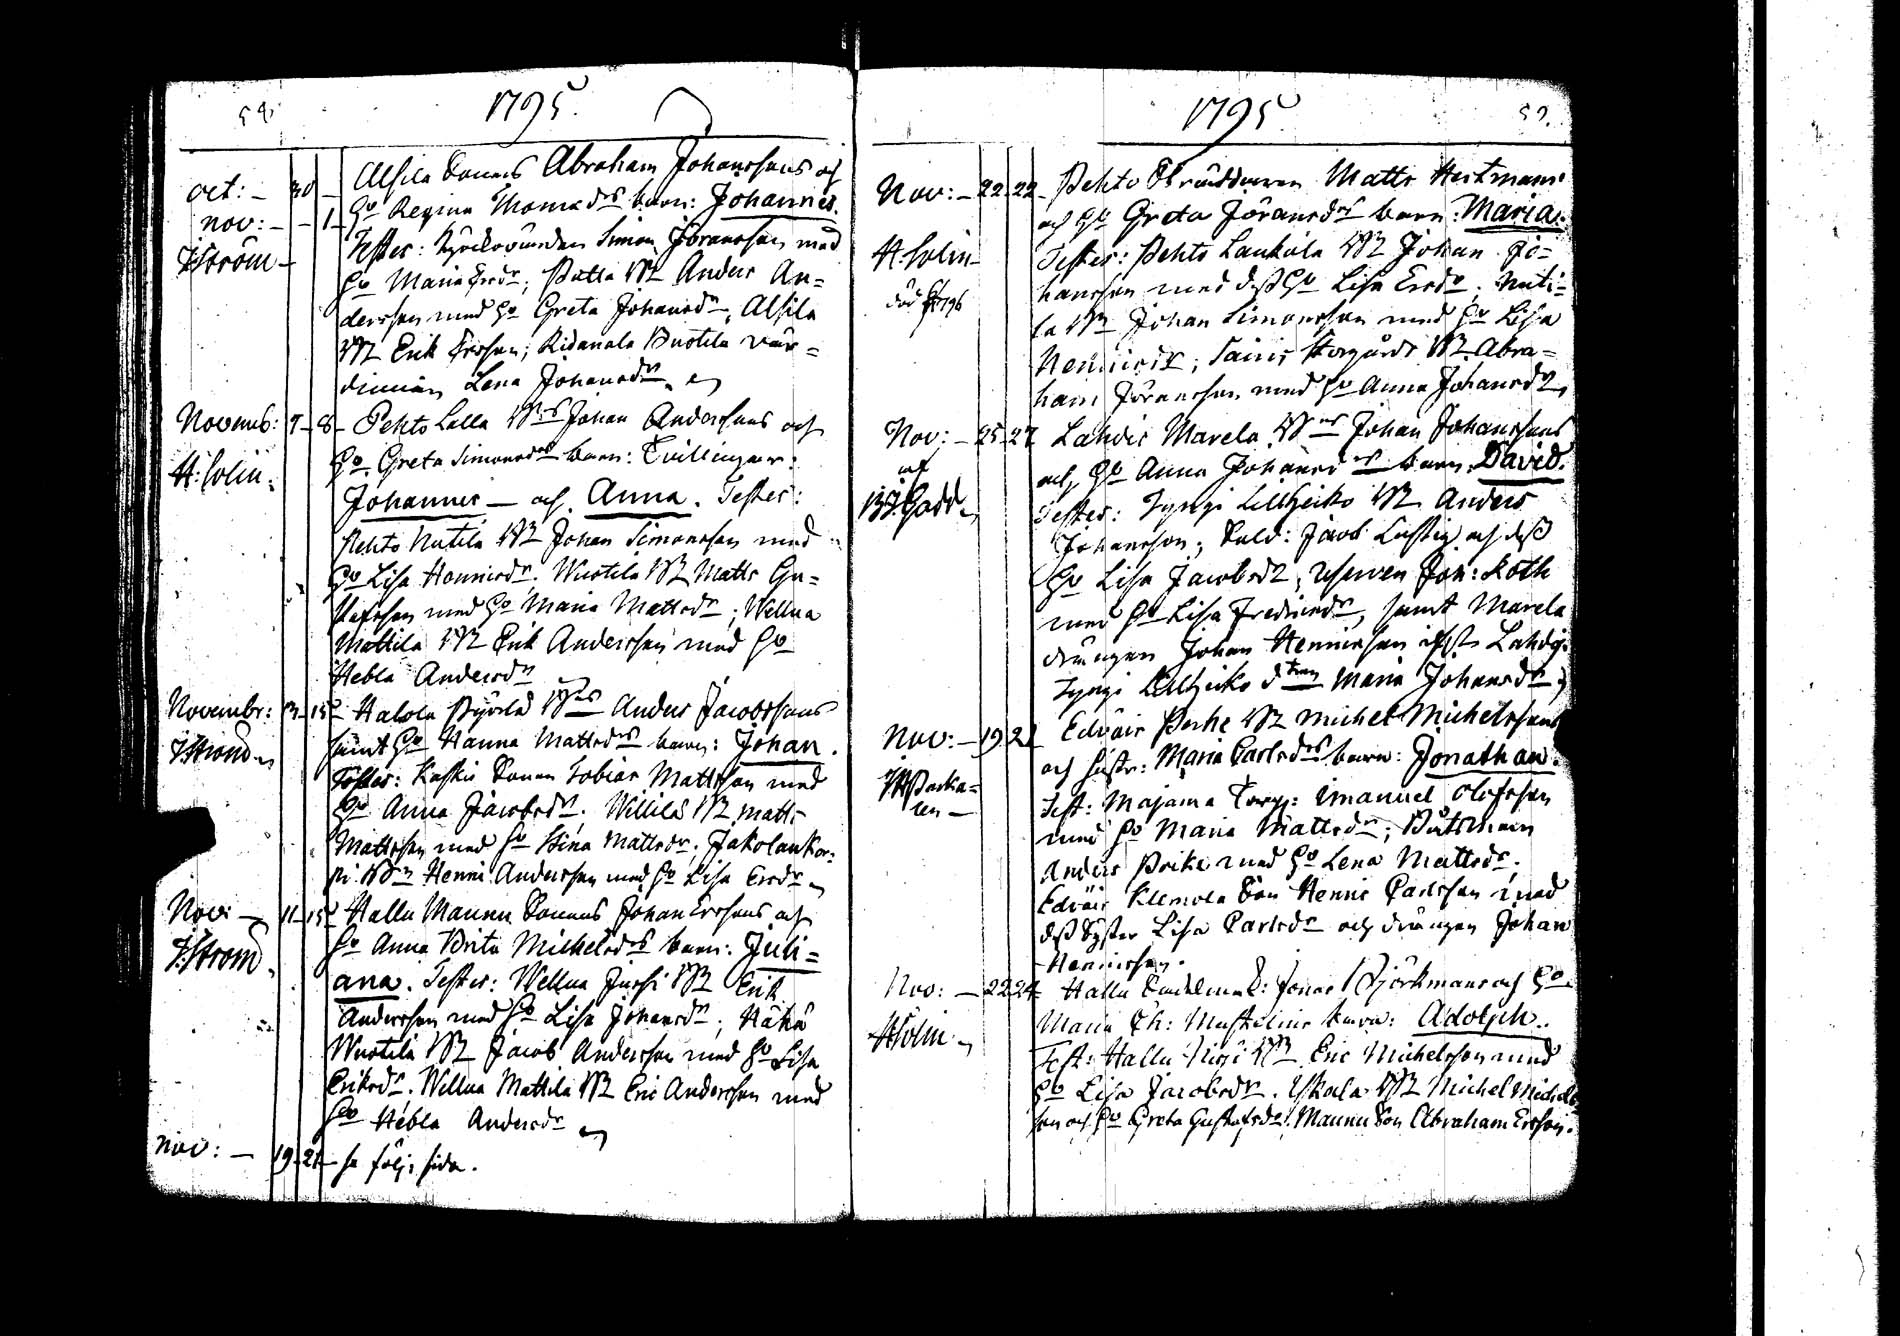 58.
1795.
oct: - 30 - Alsila Sonens Abraham Johanssons och
nov: - - 1 Ho Regina Thomasdrs barn: Johannes.
J Ström - Testes: Kyrkovärden Simon Jöransson med
Ho Maria Ersdr, Patta BR Anders An=
dersson med Ho Greta Johansdr, Alsila
BR Erik Ersson; Ridanala Buotila vär=
dinnan Lena Johansdr
Novemb: 7 - 8 - Pehto Lalla Johan Anderssons och
H: Solin. Ho Greta Simonsdrs barn: Tvillingar:
Johannes - och Anna. Testes:
Pehto Nutila BR Johan Simonsson med
Ho Lisa Hennicsdr. Wuotila BR Matts Gu=
stafsson med Ho Maria Mattsdr; Wellua
Mattila BR Erik Andersson med Ho
Hebla Andersdr
Novembr: 13 - 15 Halola Anders Jacobssons
J Ström samt Ho Hanna Mattsdrs barn: Johan.
Testes: Koskis Sonen Tobias Mattsson med
Ho Anna Jacobsdr. Willilä BR Matts
Mattsson med Ho Stina Mattsdr. Jakolankor=
pi BR Henric Andersson med Ho Lisa Ersdr
Nov: - 11 - 15 Hallu Maunu Sonens Johan Erssons och
J. Ström. Ho Anna Brita Michelsdrs barn: Juli=
ana. Testes: Wellua Jussi BR Erik
Andersson med Ho Lisa Johansdr; Hähä
Wuotila BR Jacob Andersson med Ho Lisa
Eriksdr. Wellua Mattila BR Eric Andersson med
Ho Hebla Andersdr
nov: - 19 - 21 - se följ: sida.
1795
59.
Nov: - 22 - 22 - Pehto Skräddaren Matts Hertmans
och Ho Greta Jöransdrs barn: Maria.
H. Solin Testes: Pehto Laukola BR Johan Jo=
död 1796 hansson med dess Ho Lisa Ersdr. Nuti=
la BR Johan Simonsson med Ho Lisa
Hennicsdr; Sairis Storgårds BR Abra=
ham Jöransson med Ho Anna Johansdr
Nov: - 25 - 27 Lahdis Marela Johan Johanssons
af och Ho Anna Johansdrs barn David.
B J. Gadd Testes: Jynyi Lillheiko BR Anders
Johansson; Sold: Jacob Lustig och dess
Ho Lisa Jacobsdr, Johan: Roth
med Ho Lisa Fredricsdr, samt Marela
drängen Johan Henricsson Lahdis
Jynyi Lillheiko dtren Maria Johansdr
Nov: - 19 21 Edväis Perhe BR Michel Michelssons
och hustr: Maria Carlsdrs barn: Jonathan.
Test: Majama Torp: Emanuel Olofsson
med Ho Maria Mattsdr; Båtsman
Anders Prike med Ho Lena Mattsdr.
Edväis Klemola Son Henric Carlsson med
dess Syster Lisa Carlsdr och drängen Johan
Henricsson.
Nov: - 22 24 Hallu Jonas Björkmans och Ho
H Solin Maria barn: Adolph.
Test: Hallu BR Eric Michelsson med
Ho Lisa Jacobsdr. Yskala BR Michel Michels
son och Ho Greta Gustafsdr. Maunu Son Abraham Ersson.